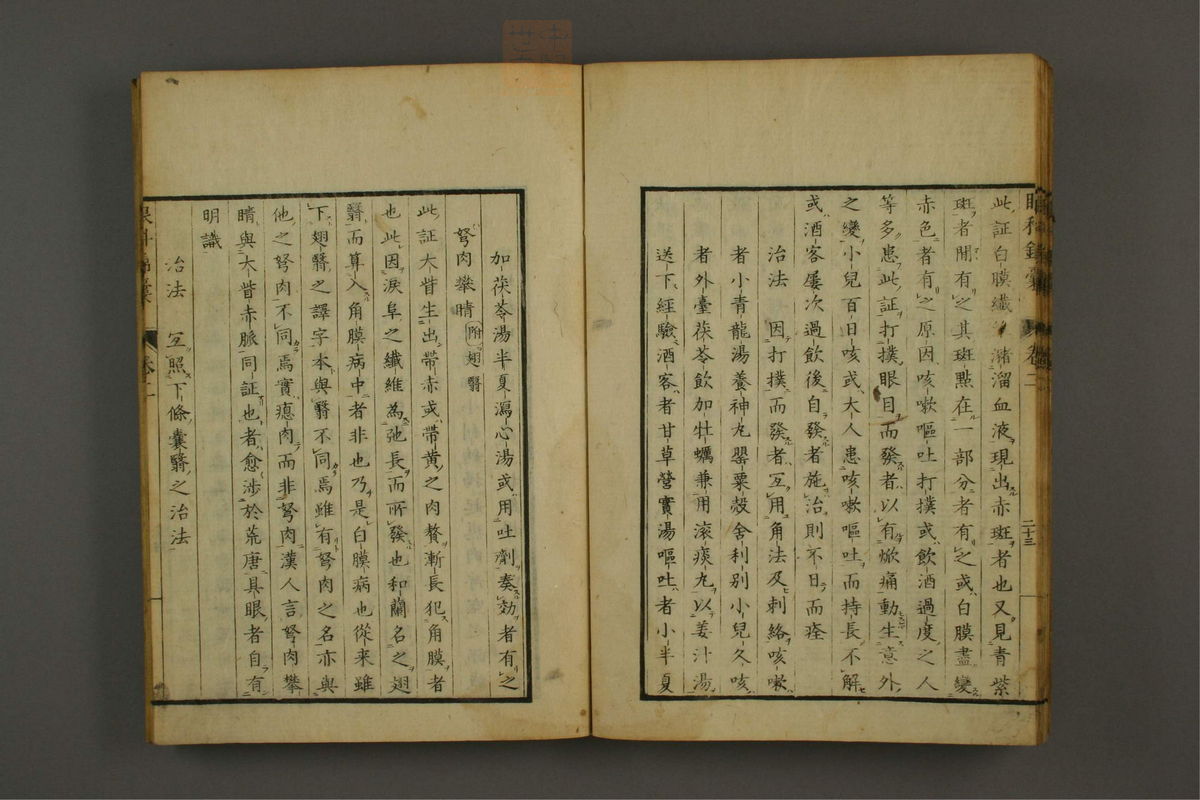 眼科錦囊 卷二 二十三
此証白膜纖 瀦溜血液現出赤斑者也又見青紫
斑者間有之其斑點在一部分者有之或白膜盡變
赤色者有之原因咳嗽嘔吐打撲或飲酒過度之人
等多患此証打撲眼目而發者以有焮痛動生意外
之變小兒百日咳或大人患咳嗽嘔吐而持長不解
或酒客屢次過飲後自發者施治則不日而痊
治法 因打撲而發者互用角法及刺絡咳嗽
者小青龍湯養神丸罌粟殻舍利別小兒久咳
者外臺茯苓飲加牡蠣兼用滚痰丸以姜汁湯
送下經驗酒客者甘草營實湯嘔吐者小半夏
加茯苓湯半夏瀉心湯或用吐劑奏効者有之
胬肉攀睛 附翅翳
此証大眥生出帶赤或帶黃之肉贅漸長犯角膜者
也此因淚阜之纖維為弛長而所發也和蘭名之翅
翳而算入角膜病中者非也乃是白膜病也從来雖
下翅翳之譯字本與翳不同焉雖有胬肉之名亦與
他之胬肉不同焉實瘜肉而非胬肉漢人言胬肉攀
睛與大眥赤脈同証也者愈涉於荒唐具眼者自有
明識
治法 互照下條囊翳之治法
眼科錦囊 卷二